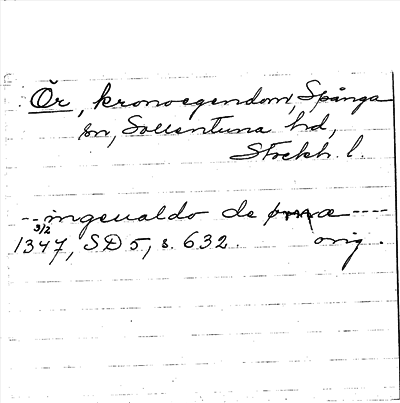 Ör, kronoegendom, Spånga
sn, Sollentuna hd,
Stockh. l.
-- ingeualdo de ørnæ ----
3/2
1347, SD 5, s. 632. orig.